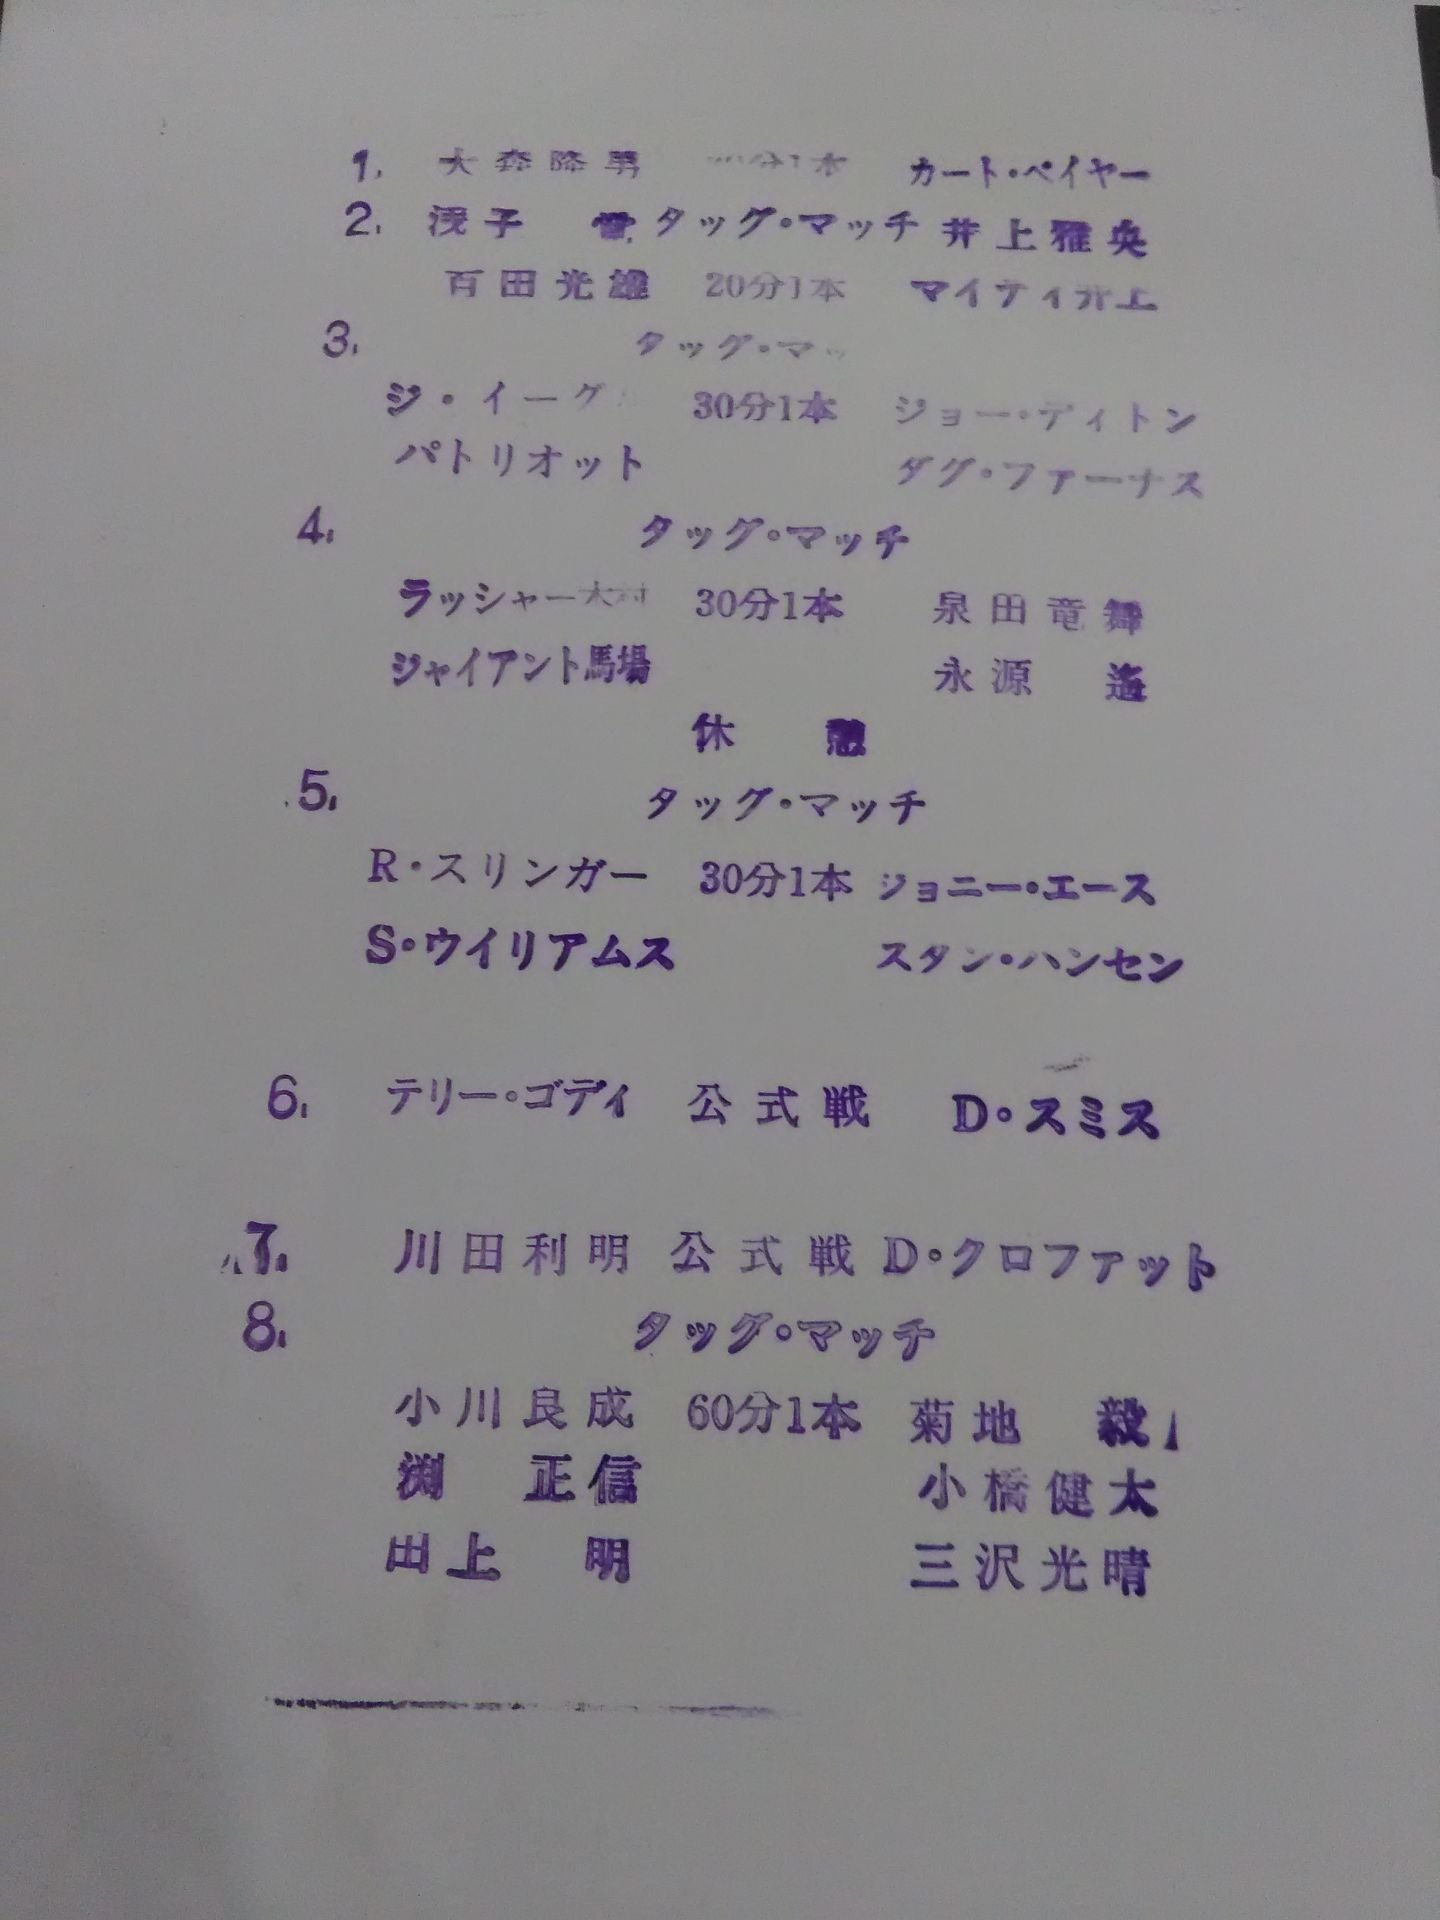 1. 大森隆男 分1本 カート・ベイヤー
2. 浅子 タッグ・マッチ 井上雅央
百田光雄 20分1本 マイティ井上
3. タッグ・マッ
ジ・イーグ 30分1本 ジョー・ディトン
パトリオット ダグ・ファーナス
4. タッグ・マッチ
ラッシャー木村 30分1本 泉田竜舞
ジャイアント馬場 永源 遙
休 憩
5. タッグ・マッチ
R・スリンガー 30分1本 ジョニー・エース
S・ウイリアムス スタン・ハンセン
6. テリー・ゴディ 公式戦 D・スミス
7. 川田利明 公式戦 D・クロファット
8. タッグ・マッチ
小川良成 60分1本 菊地 毅
渕 正信 小橋健太
田上 明 三沢光晴